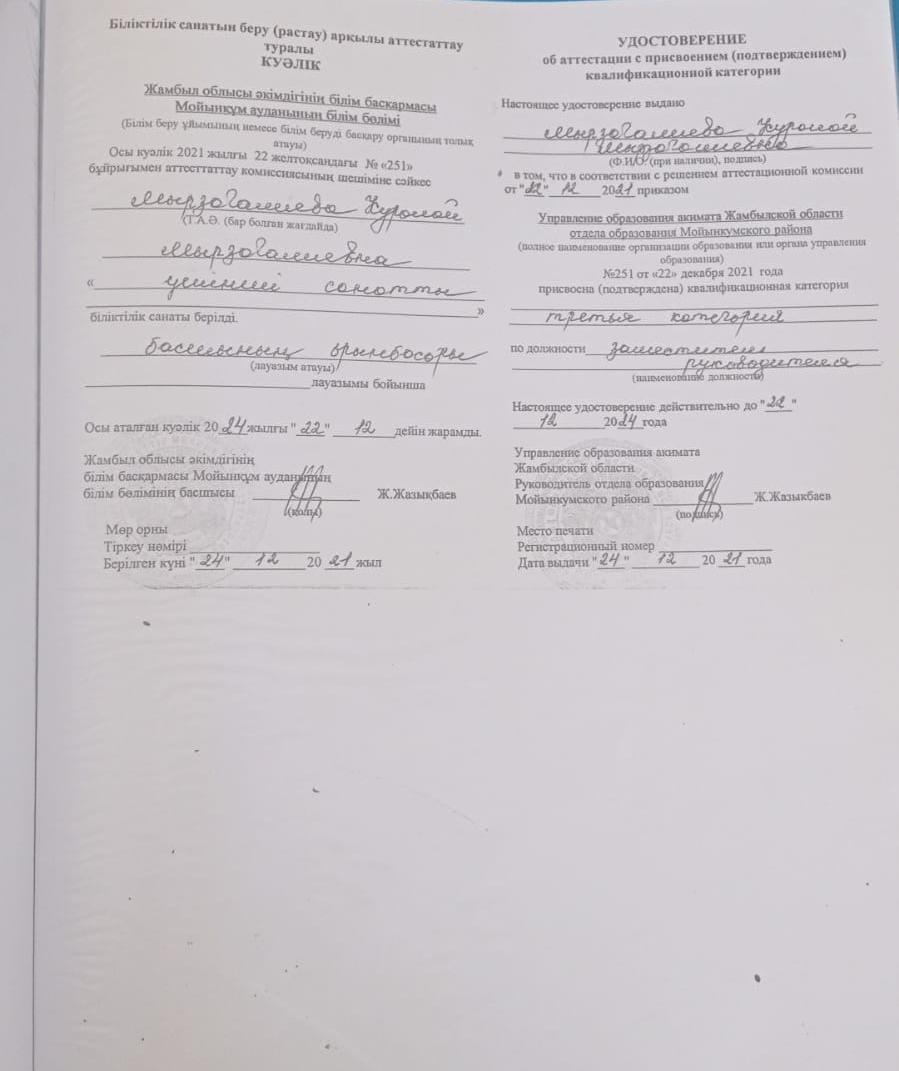 Біліктілік санатын беру (растау) арқылы аттестаттау
туралы
КУӘЛІК
Жамбыл облысы әкімдігінің білім басқармасы
Мойынқұм ауданының білім бөлімі
(Білім беру ұйымының немесе білім беруді басқару органының толық
атауы)
Осы куәлік 2021 жылғы 22 желтоқсандағы № «251»
бұйрығымен аттесттаттау комиссиясының шешіміне сәйкес
Мырзагалиева Куропай
(Т.А.Ә. (бар болған жағдайда)
Мырзагалиевна
« үшінші санатты
»
біліктілік санаты берілді.
басшысының орынбасары
(лауазым атауы)
лауазымы бойынша
Осы аталған куәлік 2024 жылғы "22" 12 дейін жарамды.
Жамбыл облысы әкімдігінің
білім басқармасы Мойынқұм ауданының
білім бөлімінің басшысы Ж.Жазықбаев
(қолы)
Мөр орны
Тіркеу нөмірі
Берілген күні "24" 12 20 21 жыл
УДОСТОВЕРЕНИЕ
об аттестации с присвоением (подтверждением)
квалификационной категории
Настоящее удостоверение выдано
Мырзагалиева
(Ф.И.О. (при наличии), подпись)
в том, что в соответствии с решением аттестационной комиссии
от "22" 12 2021 приказом
Управление образования акимата Жамбылской области
отдела образования Мойынкумского района
(полное наименование организации образования или органа управления
образования)
№251 от «22» декабря 2021 года
присвоена (подтверждена) квалификационная категория
третья категория
по должности заместителя
руководителя
(наименование должности)
Настоящее удостоверение действительно до "22"
12 2024 года
Управление образования акимата
Жамбылской области
Руководитель отдела образования
Мойынкумского района Ж.Жазыкбаев
(подпись)
Место печати
Регистрационный номер
Дата выдачи "24" 12 20 21 года